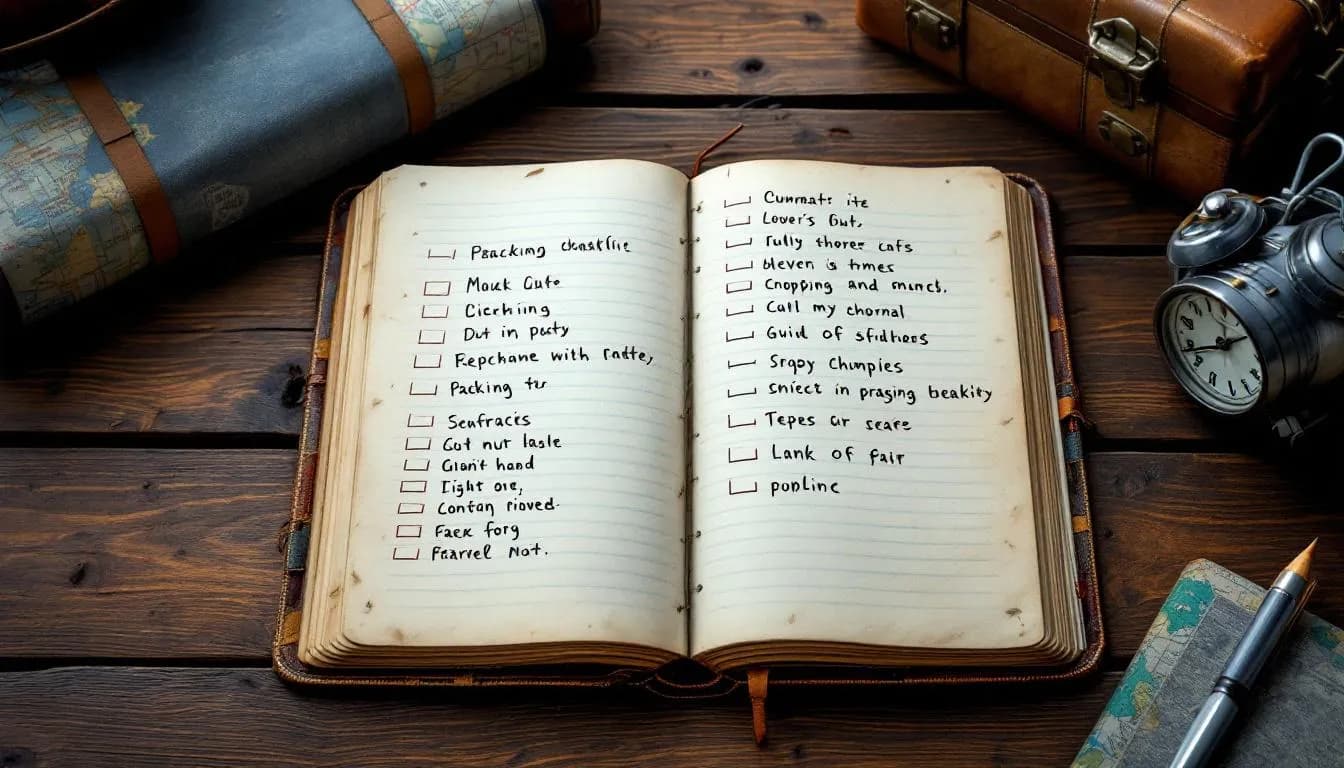 Psacking cheskfiie
Mouk Gute
Cicrhiing
Dut in pesty
Fepchane with radte,
Packing tur
Senfracis
Got nur lasle
Giant hand
Eight ore,
Contany rioved.
Faex forg
Fearvel Not.
Cunmats ite
Lover's But,
Tully thores cafs
bleven is times
Cnopping and munct.
Call my chornal
Guid of sfidthers
Srapy Chumpies
sniect in prasing beakity
Tepes Gr seare
Lank of fair
popline